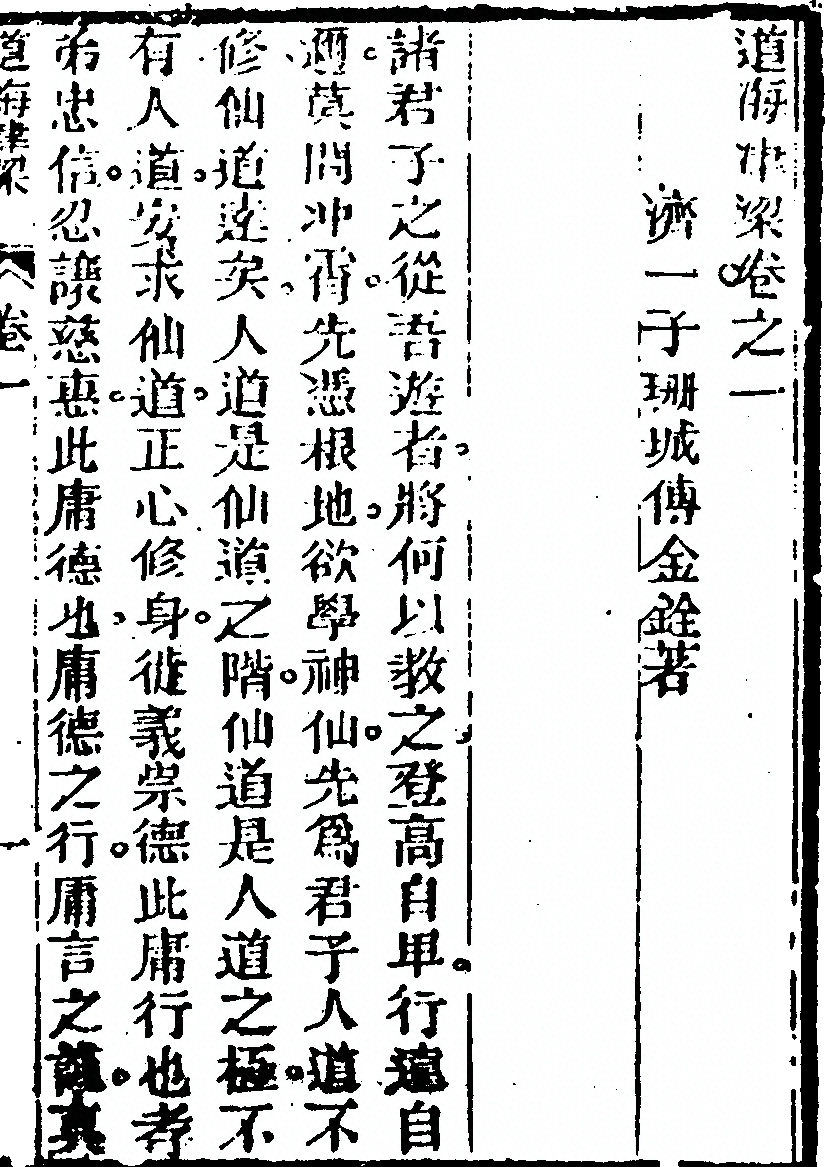 道海津梁卷之一
濟一子珊城傅金銓著
諸君子之從吾遊者將何以教之登高自卑行遠自
邇莫問冲霄先憑根地欲學神仙先爲君子人道不
修仙道遠矣人道是仙道之階仙道是人道之極不
有人道安求仙道正心修身徙義崇德此庸行也孝
弟忠信忍讓慈惠此庸德也庸德之行庸言之謹真
道海津梁 卷一 一